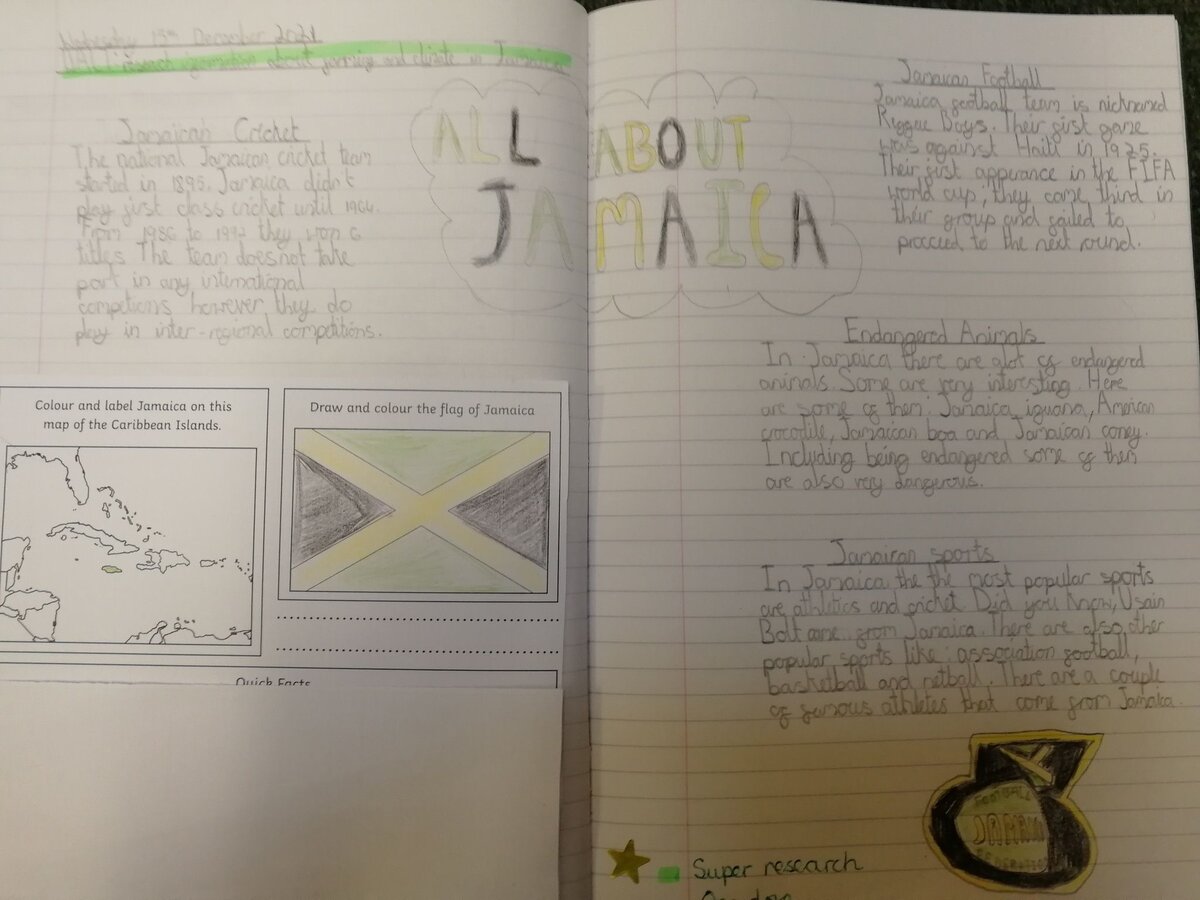 Wednesday 15th December 2021
WALT: research information about farming and climate in Jamaica
ALL ABOUT
JAMAICA
Jamaican Cricket
The national Jamaican cricket team
started in 1895. Jamaica didn't
play first class cricket until 1966.
From 1986 to 1992 they won 6
titles. The team does not take
part in any international
competions however they do
play in inter-regional competitions.
Colour and label Jamaica on this
map of the Caribbean Islands.
Draw and colour the flag of Jamaica
Quick Facts
Jamaican Football
Jamaica football team is nicknamed
Reggae Boys. Their first game
was against Haiti in 1925.
Their first apperance in the FIFA
world cup, they came third in
their group and failed to
proceed to the next round.
Endangered Animals
In Jamaica there are alot of endangered
animals. Some are very interesting. Here
are some of them: Jamaica iguana, American
crocodile, Jamaican boa and Jamaican coney.
Including being endangered some of them
are also very dangerous.
Jamaican sports
In Jamaica the the most popular sports
are athletics and cricket. Did you know, Usain
Bolt came from Jamaica. There are also other
popular sports like: association football,
basketball and netball. There are a couple
of famous athletes that come from Jamaica.
FOOTBALL
JAMAICA
FEDERATION
Super research